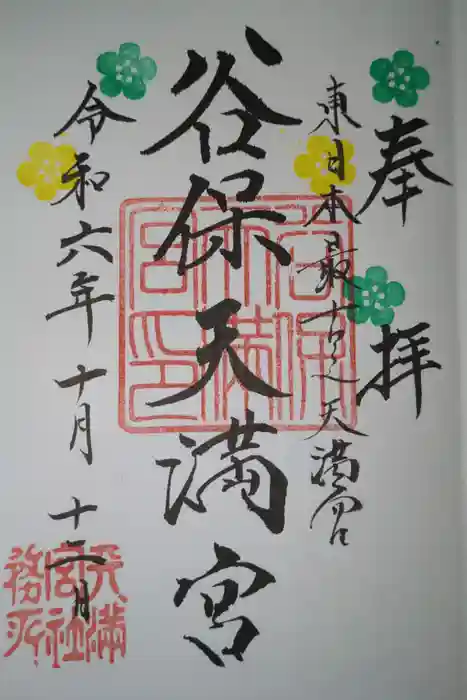 奉拝
東日本最古之天満宮
谷保天満宮
令和六年十月十二日
谷保天満宮印
天満宮社務所